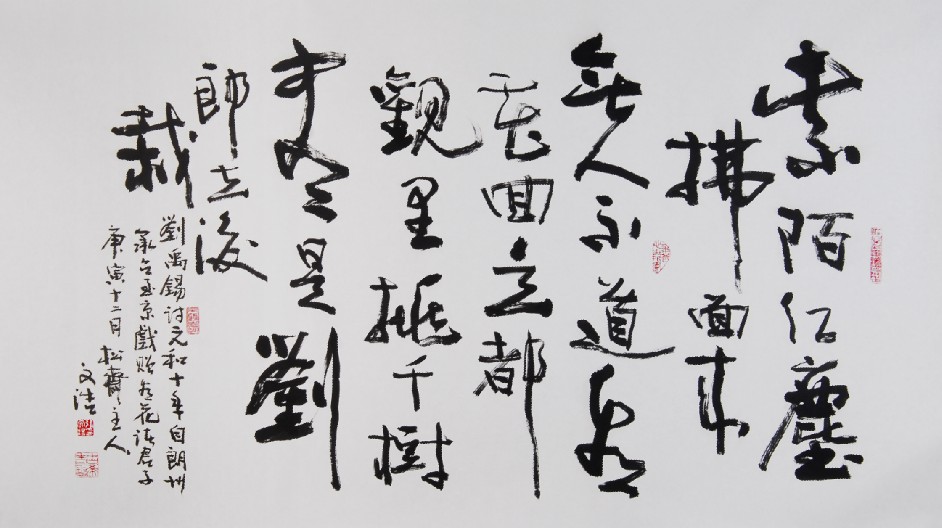 紫陌红塵
拂面来
無人不道看
花回玄都
觀里桃千樹
尽是劉
郎去後
栽
劉禹錫詩元和十年自朗州
承召至京戲贈看花诸君子
庚寅十二月松齋主人
文浩